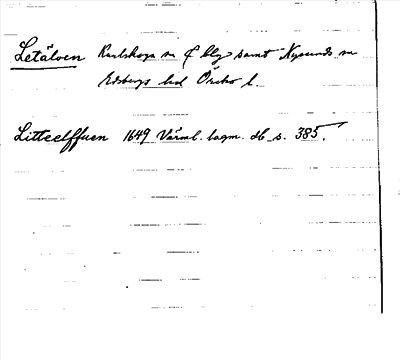 Letälven Karlskoga sn o blg samt Nysunds sn
Edsbergs hd Örebro l.
Litteelffuen 1649 Värml. lagm. db s. 385.